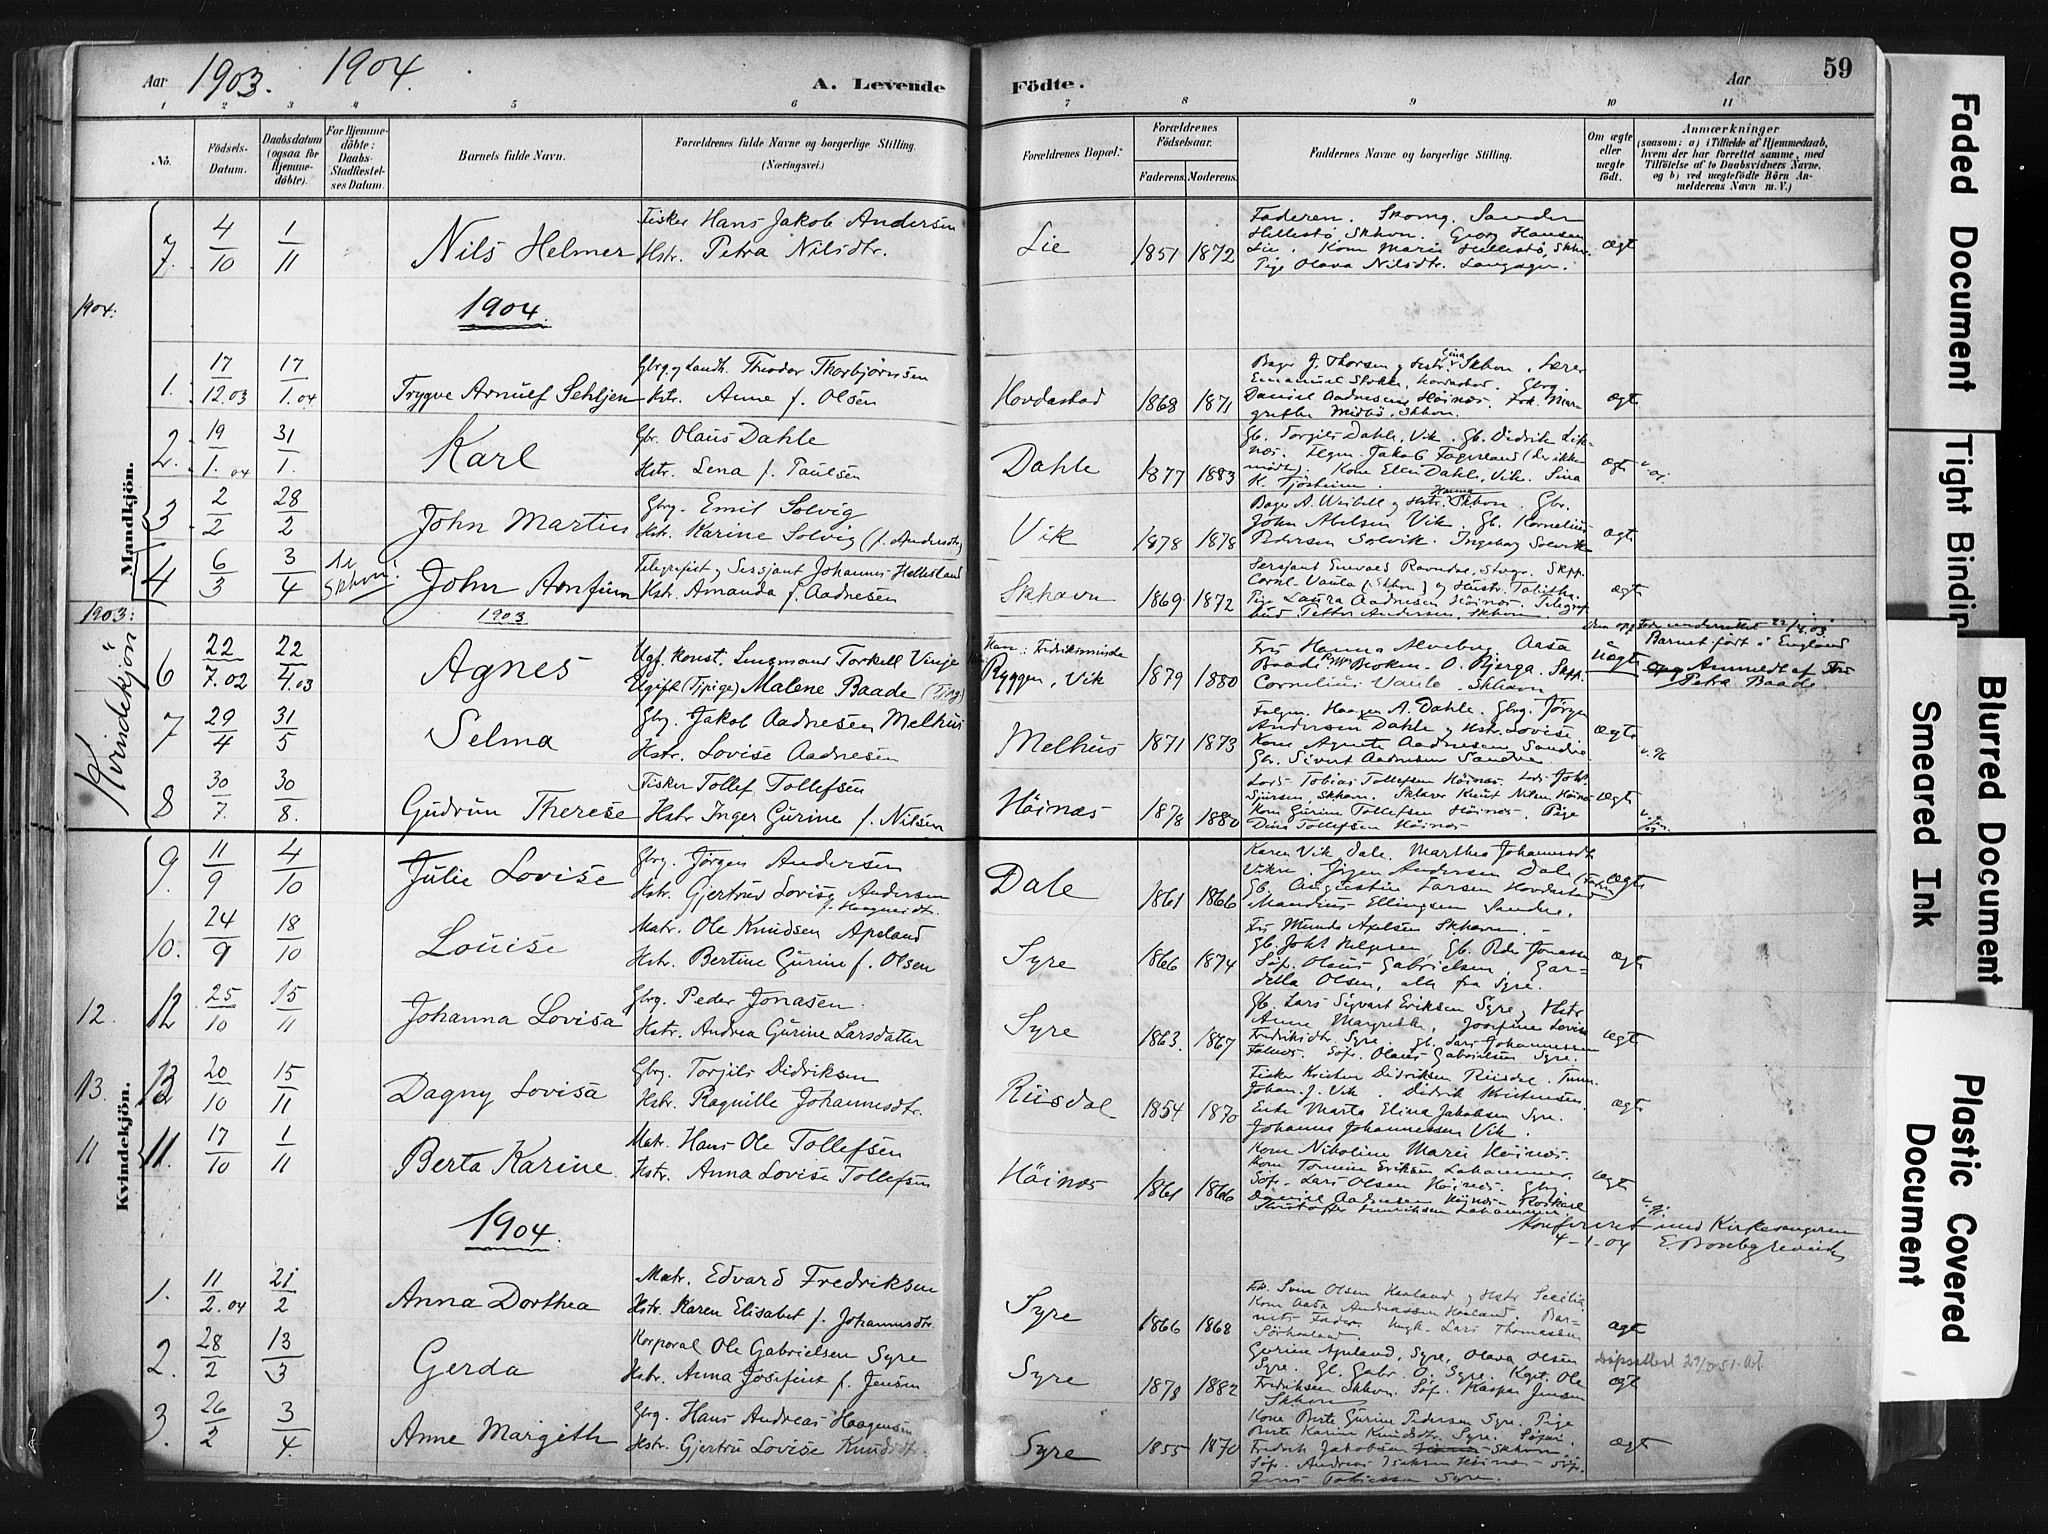 Aar 1903. 1904. A. Levende Födte. Aar 59
1 2 3 4 5 6 7 8 9 10 11
No. Födsels-Datum. Daabsdatum (ogsaa for Hjemmedöbte). For Hjemmedöbte: Daabs-Stadfæstelses Datum. Barnets fulde Navn. Forældrenes fulde Navne og borgerlige Stilling. (Næringsvei.) Forældrenes Bopæl. Forældrenes Födselsaar. Faderens. Moderens. Faddernes Navne og borgerlige Stilling. Om ægte eller uægte födt. Anmærkninger (saasom: a) i Tilfælde af Hjemmedaab, hvem der har forrettet samme, med Tilföielse af to Daabsvidners Navne, og b) ved uægtefödte Börn Anmelderens Navn m. V.)
Mandkjön.
7. 4/10 1/11 Nils Helmer
Fisker Hans Jakob Andersen
Hstr. Petra Nilsdtr.
Lie 1851 1872
Faderen. Sander
Hellestö Skhvn. Georg Hansen
Lie. Kone Marie Hellestö, Skhvn.
Pige Olava Nilsdtr. Langager.
ægt
1904: 1904.
1. 17/12.03 17/1.04 Trygve Arnulf Sehljen
Gbrg. og Landh. Theodor Thorbjörnsen
Hstr. Anne f. Olsen
Hovdastad 1868 1871
Bager J. Thorsen og Hstr. Gina Skhvn. Lærer
Emanuel Stokke, Hovdastad. Gbrg.
Daniel Aadnesen Höinæs. Frk. Mar-
grethe Midbö, Skhvn.
ægt
2. 19/1.04 31/1. Karl
Gbr. Olaus Dahle
Hstr. Lena f. Paulsen
Dahle 1877 1883
Gb. Torgils Dahle, Vik. Gb. Didrik Lik-
næs. Jakob Fagerland (der ikke
mödte). Kone Ellen Dahle, Vik. Sina
K. Tjösheim.
ægt
3 2/2 28/2 John Martin
Gbrg. Emil Solvig
Hstr. Karine Solvig (f. Andersdtr)
Vik 1878 1878
Bager A. Weibell og Hstr. Hanna Skhvn. Gbr.
John Abelsen Vik. Gb. Kornelius
Pedersen Solvik. Ingeborg Solvik
ægt
4 6/3 3/4 Skhvn! John Arnfinn
Telegrafist og Sersjant Johannes Hellesland
Hstr. Amanda f. Aadnesen
Skhavn 1869 1872
Sersjant Ravndal, Stvgr. Skpp.
Cornl. Vaula (Skhvn.) og Hustr. Tabitha.
Pige Laura Aadnesen Höinæs. Telegraf-
bud Petter Andersen, Skhvn.
ægt
1903: 1903
Kvindekjön
6 22/7.02 22/4.03 Agnes
Ugf. Konst. Lingmand Torkell Vinje
Ugift (Tjpige) Malene Baade (Ting)
Ham: Fredriksminde
Ryggen, Vik 1879 1880
Frk Hanna Alveberg. Aasa
Baade O. Bjerga. Skpp.
Cornelius Vaule. Skhavn
Uægt
Fader underrettet 22/4.03.
Barnet født i England
og Anmeldt af Frk
Petra Baade.
7 29/4 31/5 Selma
Gbrg. Jakob Aadnesen Melhus
Hstr. Lovise Aadnesen
Melhus 1871 1873
Haagen A. Dahle. Gbrg. Jörgen
Andersen Dahle og Hstr. Lovise.
Kone Agnete Aadnesen Sandve
Gbr. Sivert Aadnesen Sandve
ægt
8 30/7. 30/8. Gudrun Therese
Fisker Tollef Tollefsen
Hstr Inger Gurine f. Nilsen
Höinæs 1878 1880
Lods Tobias Tollefsen Höinæs. Lods Joh.
Sjursen Skhavn. Knut Nilsen Höinæs
Kone Gurine Tollefsen Höinæs. Pige
Dina Tollefsen Höinæs
ægt
9. 11/9 4/10 Julie Lovise
Gbrg. Jörgen Andersen
Hstr. Gjertrud Lovise Andersen
f. Haagensdtr.
Dale 1861 1866
Karen Vik Dale. Marthea Johannesdtr
Vikre. Jörgen Andersen Dale (Faren)
Gb. Augustin Larsen Hovdastad
Mandius Ellingsen Sandve.
ægt
10. 24/9 18/10 Louise
Matr. Ole Knudsen Apeland
Hstr. Bertine Gurine f. Olsen
Syre 1866 1874
Frk Munda Axelsen Skhavn.
Gb. Joh. Helgesen. Gb. Peder Jonassen
Söf. Olaus Gabrielsen. Gar-
della Olsen, alle fra Syre.
ægt
12. 12 25/10 15/11 Johanna Lovisa
Gbrg. Peder Jonasen.
Hstr. Andrea Gurine Larsdatter
Syre 1863. 1867
Gb. Lars Sigvart Eriksen Syre, Hstr
Anne Margrethe, Josefine Lovise
Fredriksdtr. Syre. Gb. Lars Johannessen
Falnes. Söf. Olaus Gabrielsen Syre.
ægt
13. 13 20/10 15/11 Dagny Lovisa
Gbrg. Torjils Didriksen
Hstr. Ragnille Johannesdtr.
Riisdal 1854 1870
Fisker Kristen Didriksen Riisdal.
Johan. J. Vik. Didrik Kristensen.
Enke Marta Elina Jakobsen Syre.
Johanna Johannessen Vik.
ægt
Kvindekjön.
11 11. 17/10 1/11 Berta Karine
Matr. Hans Ole Tollefsen
Hstr. Anna Lovise Tollefsen
Höinæs 1861 1866
Kone Nikoline Marie Höinæs.
Kone Tomine Eriksen Lahammer.
Söf. Lars Olsen Höinæs. Gbrg.
Daniel Aadnesen Höinæs
Kristoffer Lahammer.
ægt
1904.
Konfereret med Kirkesangeren
4-1-04
1. 11/2.04 21/2 Anna Dorthea
Matr. Edvard Fredriksen
Hstr. Karen Elisabet f. Johannesdtr.
Syre 1866 1868
Sven Olsen Haaland og Hstr Secilie.
Kone Aasa Andreassen Haaland. Bar-
nets Fader. Ungk. Lars Thomassen
Sörhaaland.
ægt
2. 28/2 13/3 Gerda
Korporal Ole Gabrielsen Syre
Hstr. Anna Josefine f. Jensen
Syre 1878 1882
Gurine Apeland, Syre, Olava Olsen
Syre. Gb. Gabr. O. Syre. Kapt. Ole
Fredriksen Skhvn. Söf. Kaspar Jensen
Skhvn
ægt
3. 26/2 3/4. Anne Margith
Gbrg. Hans Andreas Haagensen
Hstr. Gjertru Lovise Knudsdtr.
Syre 1855 1870
Kone Berte Gurine Pedersen Syre. Pige
Berte Karine Knudsdtr. Syre.
Fredrik Jakobsen Skhvn.
Söf. Andreas Isaksen Höinæs.
Jens Tobiassen Syre.
ægt
Faded Document
Tight Binding
Blurred Document
Smeared Ink
Plastic Covered Document